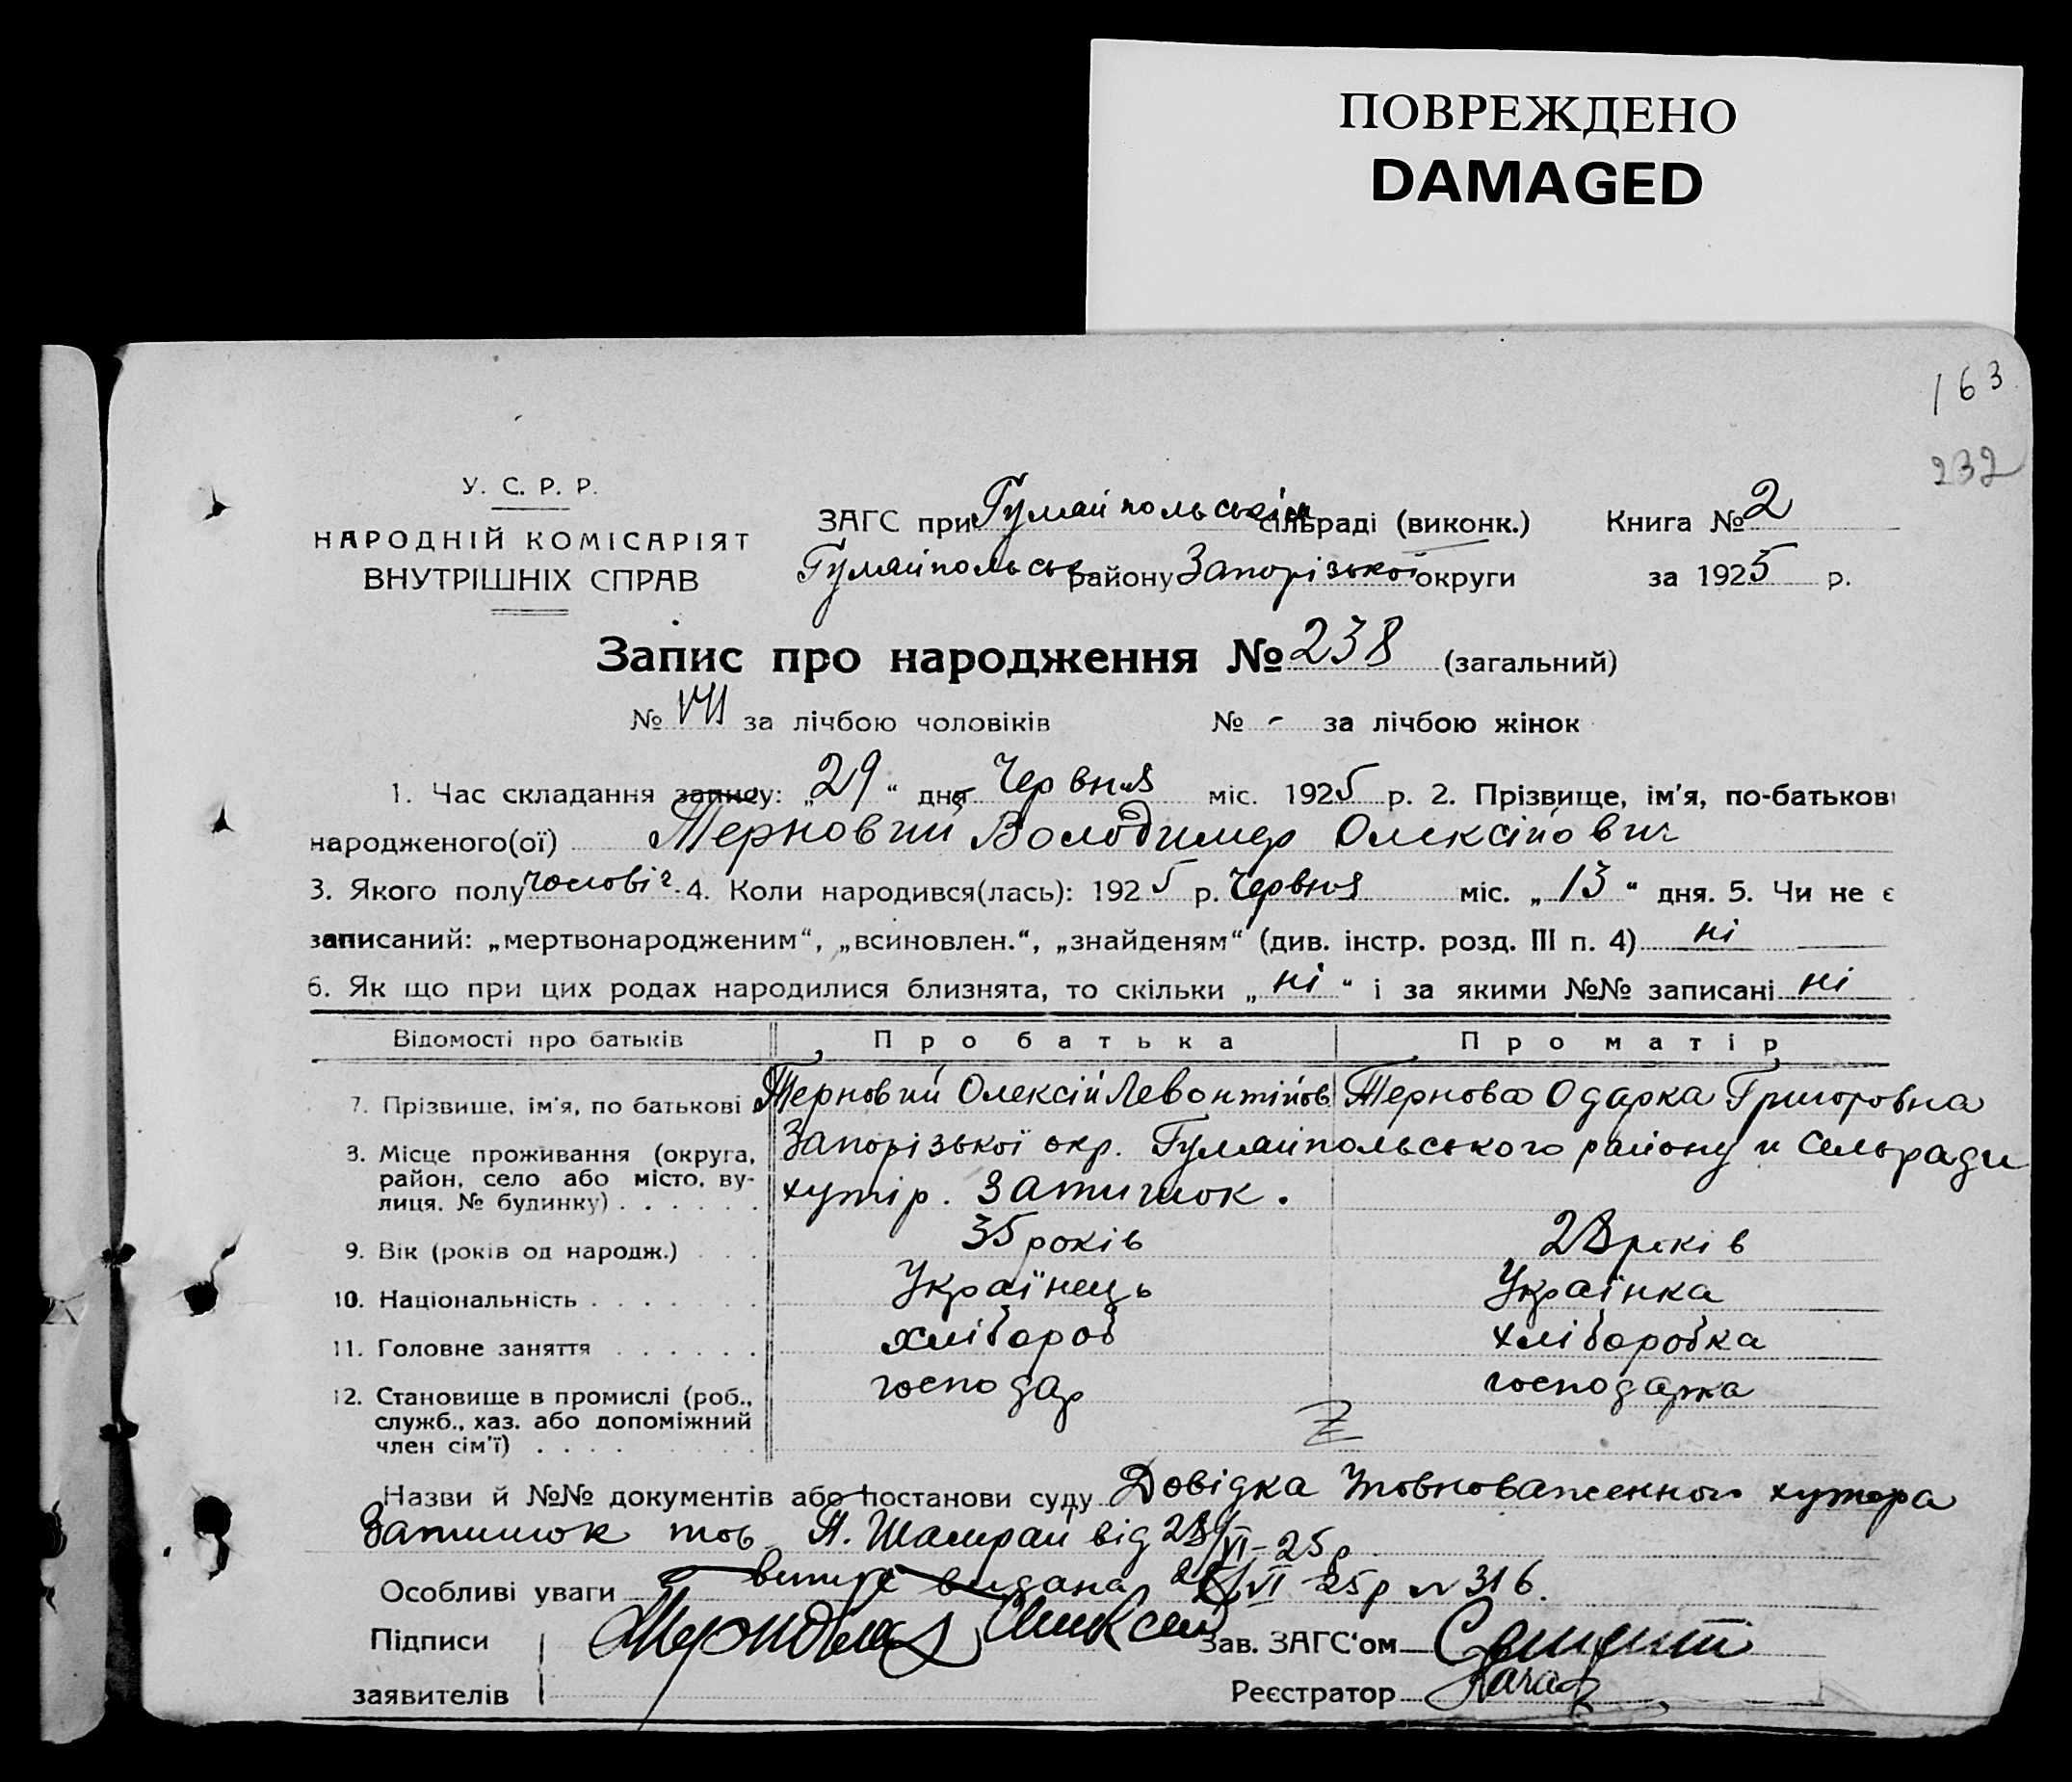 ПОВРЕЖДЕНО
DAMAGED
163
232
У. С. Р. Р.
НАРОДНІЙ КОМІСАРІЯТ
ВНУТРІШНІХ СПРАВ
ЗАГС при Гуляйпольській сільраді (виконк.) Книга № 2
Гуляйпольськ району Запорізької округи за 1925 р.
Запис про народження № 238 (загальний)
№ за лічбою чоловіків № - за лічбою жінок
1. Час складання запису: „29“ дня Червня міс. 1925 р. 2. Прізвище, ім'я, по-батькові
народженого(ої) Терновий Володимир Олексійович
3. Якого полу чоловіч. 4. Коли народився(лась): 1925 р. Червня міс. „13“ дня. 5. Чи не є
записаний: „мертвонародженим“, „всиновлен.“, „знайденям“ (див. інстр. розд. III п. 4) ні
6. Як що при цих родах народилися близнята, то скільки „ні“ і за якими №№ записані ні
Відомості про батьків Про батька Про матір
7. Прізвище, ім'я, по батькові Терновий Олексій Левонтійов Тернова Одарка Григоровна
8. Місце проживання (округа, район, село або місто, вулиця, № будинку) Запорізької окр. Гуляйпольського району и Сельради
хутір. Затишок.
9. Вік (років од народж.) 35 років 28 років
10. Національність Українець Українка
11. Головне заняття хлібороб хліборобка
12. Становище в промислі (роб., служб., хаз. або допоміжний член сім'ї) господар господарка
Назви й №№ документів або постанови суду Довідка Уповноваженного хутора
Затишок тов. П. Шамрай від 28/VI-25р
Особливі уваги випис видана 29/VI-25р № 316.
Підписи Олексій Зав. ЗАГС'ом
заявителів Реєстратор